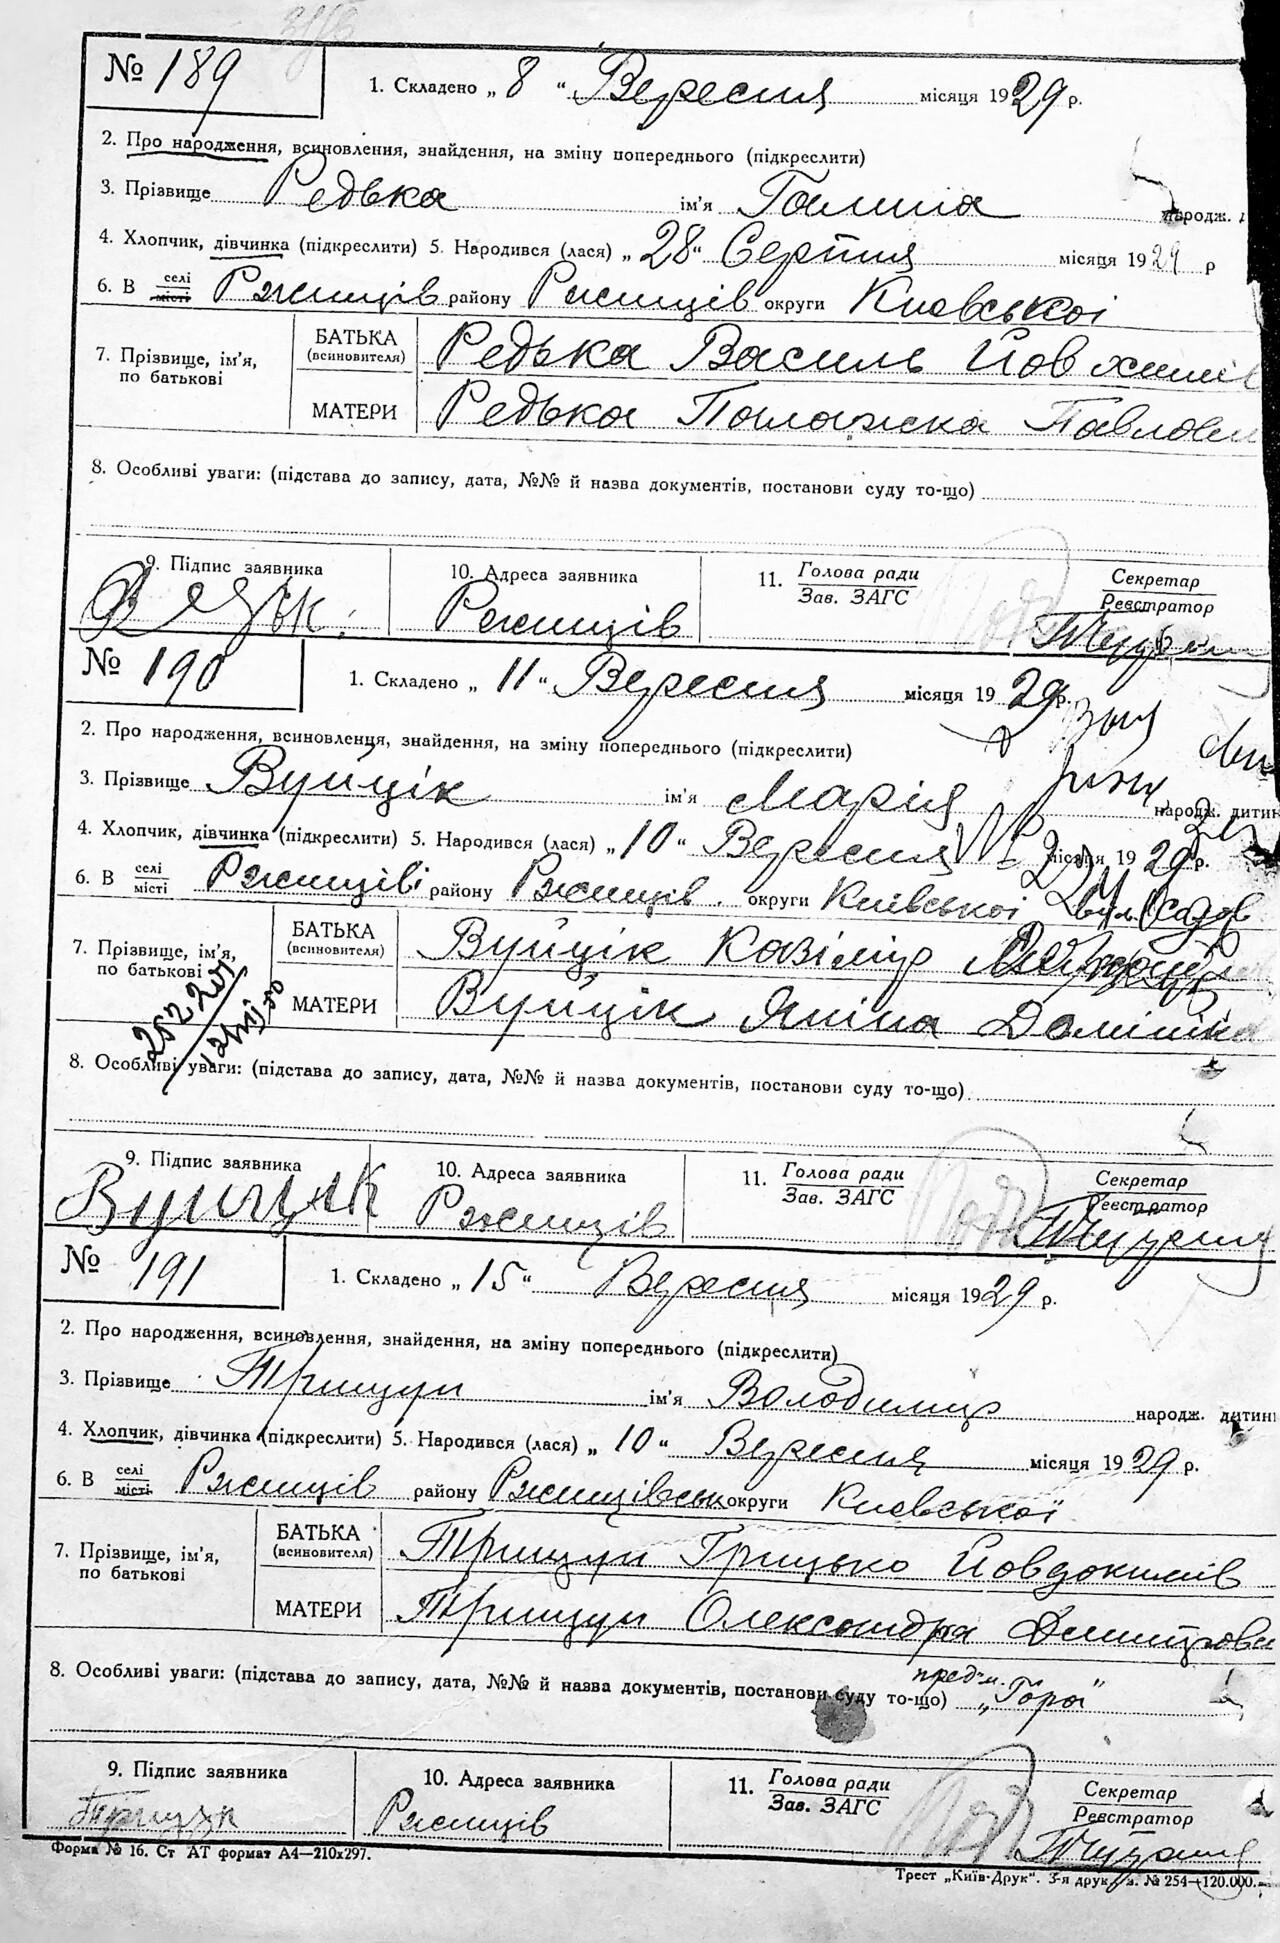 № 189
1. Складено „ 8 “ Вересня місяця 1929 р.
2. Про народження, всиновлення, знайдення, на зміну попереднього (підкреслити)
3. Прізвище Редька ім'я Галина народж.
4. Хлопчик, дівчинка (підкреслити) 5. Народився (лася) „ 28 “ Серпня місяця 1929 р
6. В селі місті Ржищів району Ржищів округи Киевської
7. Прізвище, ім'я, по батькові
БАТЬКА (всиновителя) Редька Василь Йовхимів
МАТЕРИ Редька Палажка Павловн
8. Особливі уваги: (підстава до запису, дата, №№ й назва документів, постанови суду то-що)
9. Підпис заявника
10. Адреса заявника Ржищів
11. Голова ради Зав. ЗАГС
Секретар Реєстратор
№ 190
1. Складено „ 11 “ Вересня місяця 1929 р.
2. Про народження, всиновленця, знайдення, на зміну попереднього (підкреслити)
3. Прізвище Вуйцік ім'я Марія народж. дитин
4. Хлопчик, дівчинка (підкреслити) 5. Народився (лася) „ 10 “ Вересня місяця 1929 р.
6. В селі місті Ржищіві району Ржищів округи Київської
7. Прізвище, ім'я, по батькові
БАТЬКА (всиновителя) Вуйцік Казімір
МАТЕРИ Вуйцік Яніна Домініко
8. Особливі уваги: (підстава до запису, дата, №№ й назва документів, постанови суду то-що)
9. Підпис заявника
10. Адреса заявника Ржищів
11. Голова ради Зав. ЗАГС
Секретар Реєстратор
№ 191
1. Складено „ 15 “ Вересня місяця 1929 р.
2. Про народження, всиновлення, знайдення, на зміну попереднього (підкреслити)
3. Прізвище Трищук ім'я Володимир народж. дитини
4. Хлопчик, дівчинка (підкреслити) 5. Народився (лася) „ 10 “ Вересня місяця 1929 р.
6. В селі місті Ржищів району Ржищівськ округи Киевської
7. Прізвище, ім'я, по батькові
БАТЬКА (всиновителя) Трищук Грицько Йовдокимів
МАТЕРИ Трищук Олександра Дмитрова
8. Особливі уваги: (підстава до запису, дата, №№ й назва документів, постанови суду то-що) „Гора“
9. Підпис заявника
10. Адреса заявника Ржищів
11. Голова ради Зав. ЗАГС
Секретар Реєстратор
Форма № 16. Ст АТ формат А4—210х297.
Трест „Київ-Друк“. 3-я друк. з. № 254—120.000.—